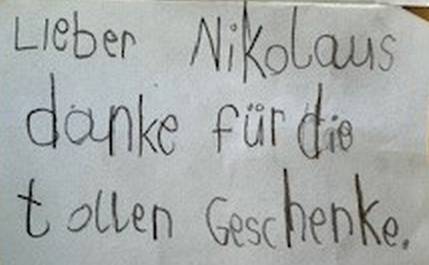 Lieber Nikolaus
danke für die
tollen Geschenke.